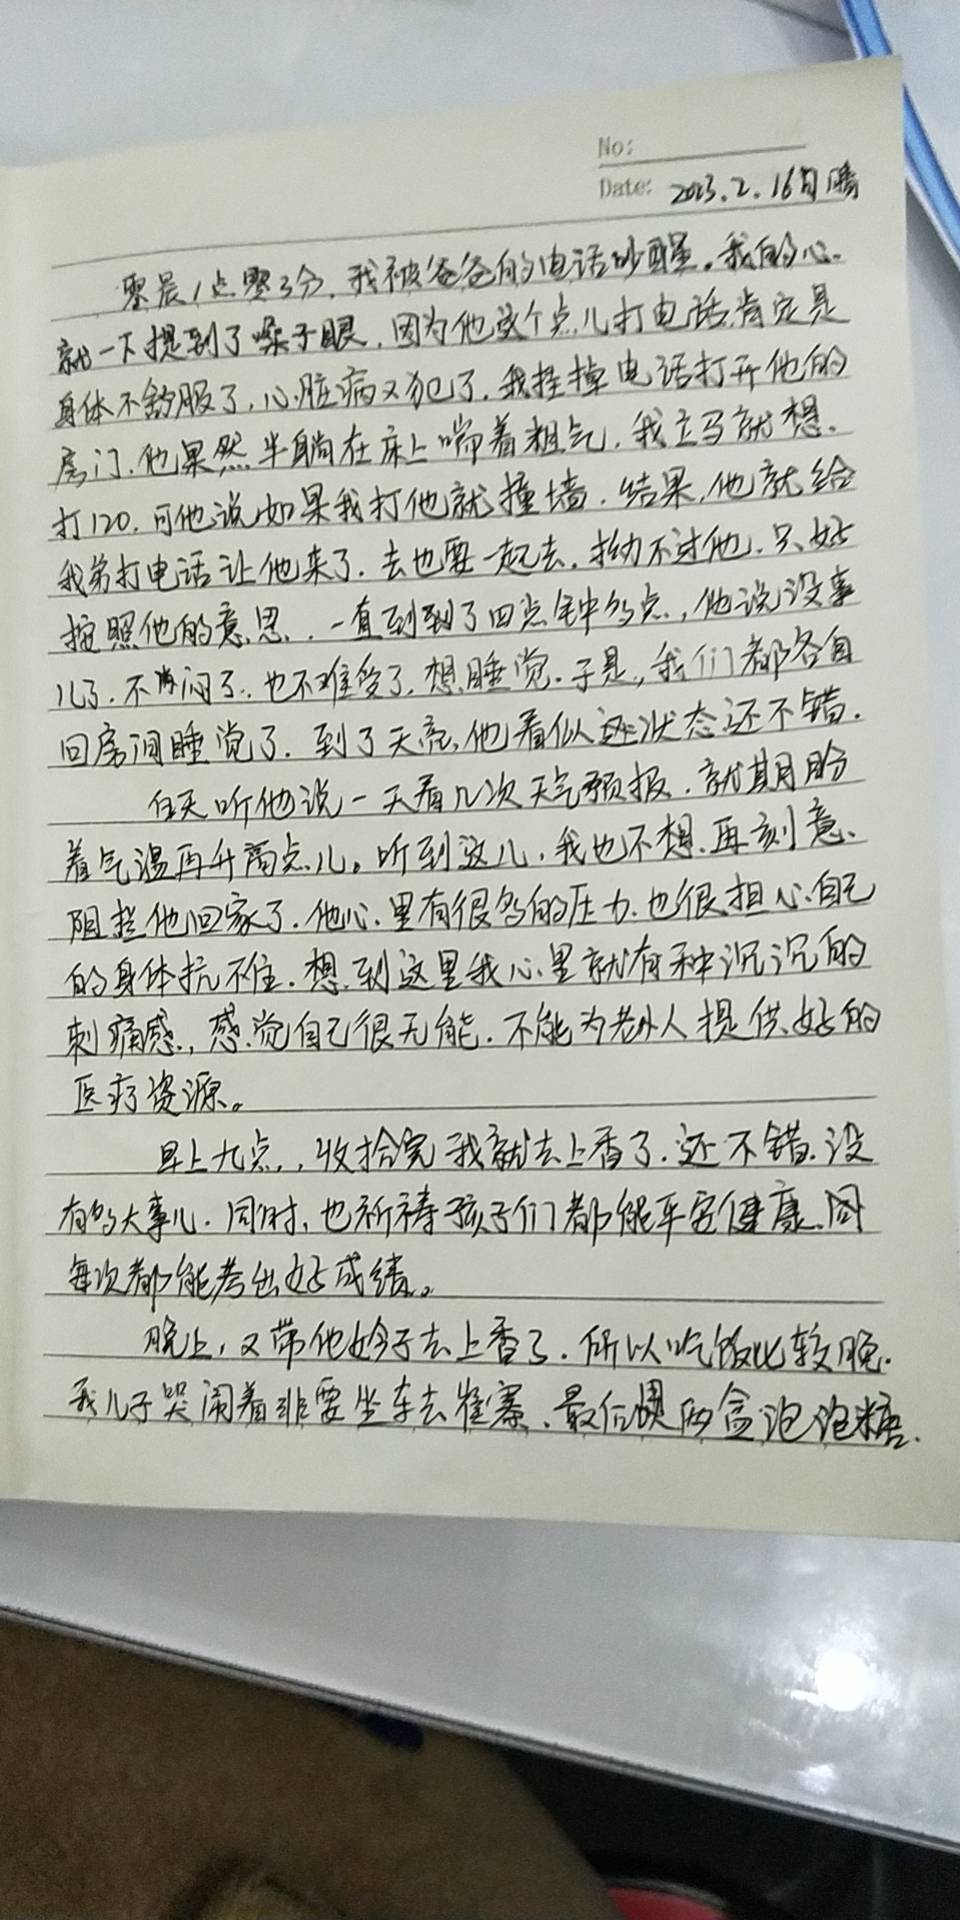 No:
Date: 2023.2.16日晴
零晨1点零3分，我被爸爸的电话吵醒。我的心
就一下提到了嗓子眼，因为他这个点儿打电话肯定是
身体不舒服了，心脏病又犯了，我挂掉电话打开他的
房门，他果然半躺在床上喘着粗气，我立马就想
打120，可他说如果我打他就撞墙，结果，他就给
我弟打电话让他来了，去也要一起去，拗不过他，只好
按照他的意思，一直到到了四点钟多点，他说没事
儿了，不闷了，也不难受了，想睡觉，于是，我们都各自
回房间睡觉了，到了天亮，他看似状态还不错。
白天听他说一天看几次天气预报，就期盼
着气温再升高点儿。听到这儿，我也不想再刻意
阻拦他回家了，他心里有很多的压力，也很担心自己
的身体抗不住，想到这里我心里就有种沉沉的
刺痛感，感觉自己很无能，不能为老人提供好的
医疗资源。
早上九点，收拾完我就去上香了，还不错，没
有多大事儿，同时，也祈祷孩子们都能平安健康，
每次都能考出好成绩。
晚上，又带他妗子去上香了，所以吃饭比较晚，
我儿子哭闹着非要坐车去崔寨，最后买两盒泡泡糖。